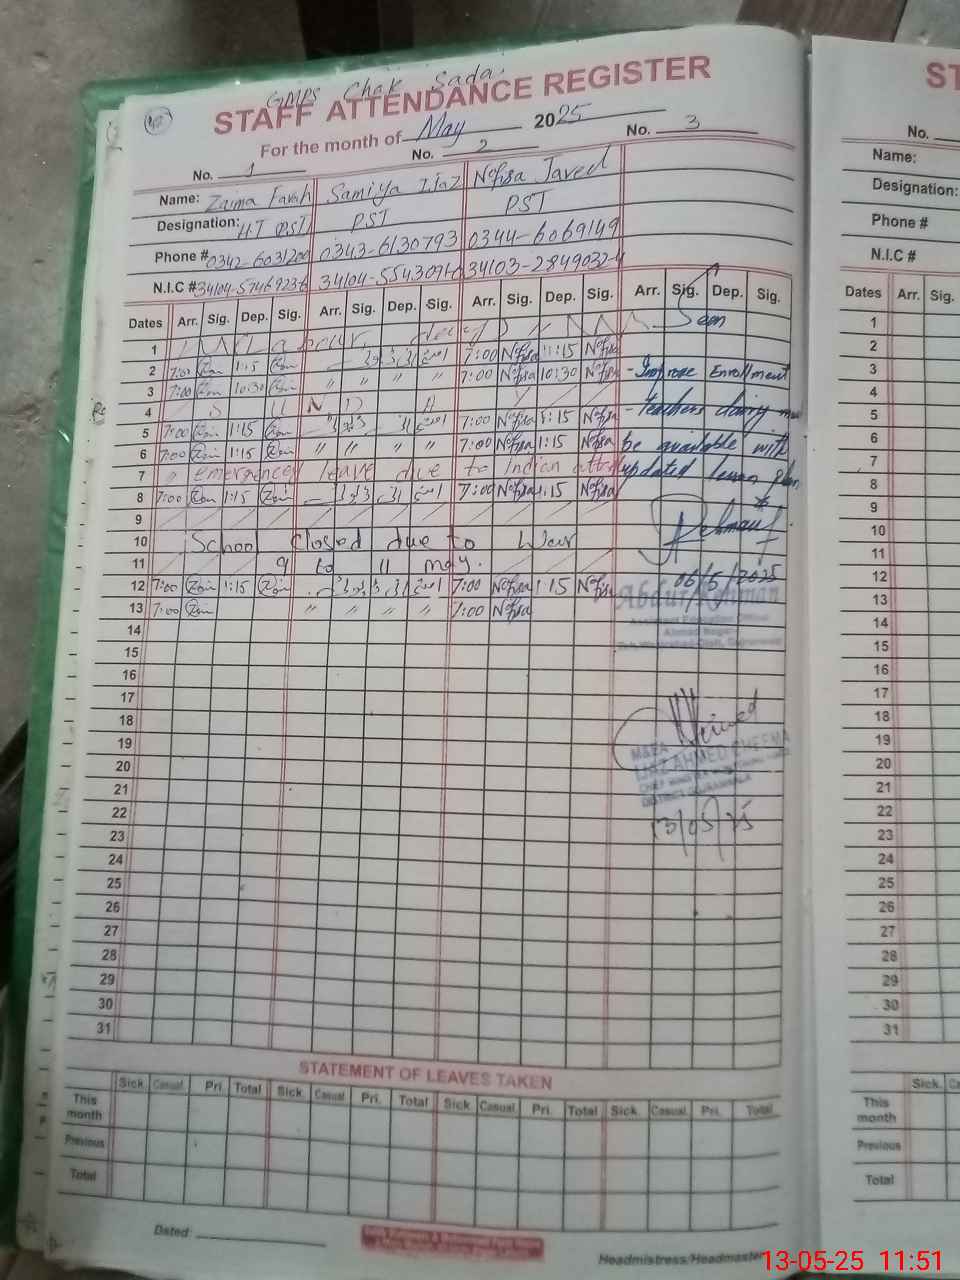 GMPS Chak Sada.
STAFF ATTENDANCE REGISTER
For the month of May 2025
No. 1 No. 2 No. 3
Name: Zaima Farah Samiya Ijaz Nafisa Javed
Designation: HT PST PST PST
Phone # 0342-6031200 0343-6130793 0344-6069149
N.I.C # 34103-2849032-4
Dates Arr. Sig. Dep. Sig. Arr. Sig. Dep. Sig. Arr. Sig. Dep. Sig. Arr. Sig. Dep. Sig.
1 Labour day Seen
2 7:00 Zain 1:15 Zain 7:00 Nafisa 1:15 Nafisa
3 7:00 Zain 10:30 Zain " " " " 7:00 Nafisa 10:30 Nafisa - Improve Enrollment
4 S U N D A Y
5 7:00 Zain 1:15 Zain 7:00 Nafisa 1:15 Nafisa - Teachers dairy must
6 7:00 Zain 1:15 Zain " " " " 7:00 Nafisa 1:15 Nafisa be available with
7 " emergency leave due to Indian attack updated lesson plan
8 7:00 Zain 1:15 Zain 7:00 Nafisa 1:15 Nafisa
9
10 School Closed due to War
11 9 to 11 may.
12 7:00 Zain 1:15 Zain 7:00 Nafisa 1:15 Nafisa 06/5/2025
13 7:00 Zain " " " " 7:00 Nafisa
Abdur Rehman
Assistant Education Officer
Ahmad Nagar
14
15
16
17
18
19
M&EA
IJAZ AHMED CHEEMA
20
21
22
13/05/25
23
24
25
26
27
28
29
30
31
STATEMENT OF LEAVES TAKEN
Sick. Casual. Pri. Total Sick. Casual. Pri. Total Sick. Casual. Pri. Total Sick. Casual. Pri. Total
This month
Previous
Total
Dated:
Headmistress/Headmaster
ST
No.
Name:
Designation:
Phone #
N.I.C #
Dates Arr. Sig.
1
2
3
4
5
6
7
8
9
10
11
12
13
14
15
16
17
18
19
20
21
22
23
24
25
26
27
28
29
30
31
Sick.
This month
Previous
Total
13-05-25 11:51